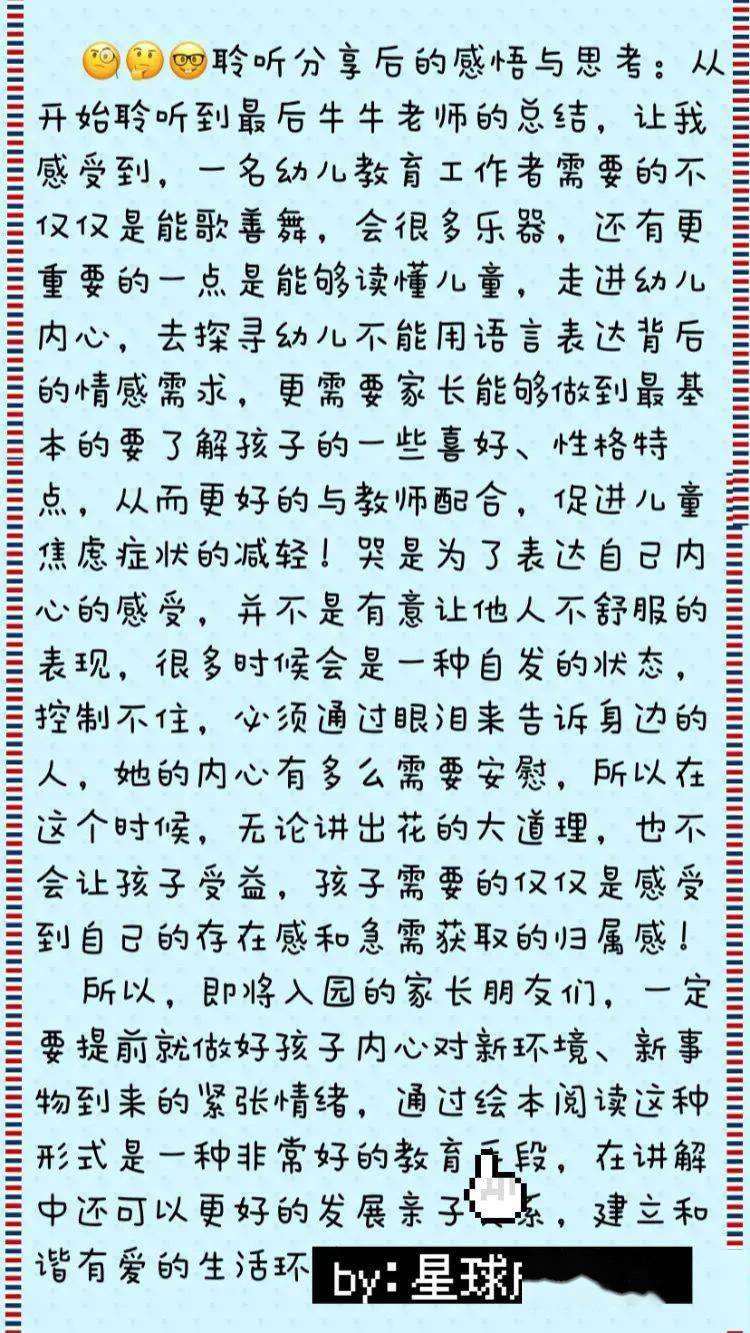 🧐🤔🤓聆听分享后的感悟与思考：从
开始聆听到最后牛牛老师的总结，让我
感受到，一名幼儿教育工作者需要的不
仅仅是能歌善舞，会很多乐器，还有更
重要的一点是能够读懂儿童，走进幼儿
内心，去探寻幼儿不能用语言表达背后
的情感需求，更需要家长能够做到最基
本的要了解孩子的一些喜好、性格特
点，从而更好的与教师配合，促进儿童
焦虑症状的减轻！哭是为了表达自己内
心的感受，并不是有意让他人不舒服的
表现，很多时候会是一种自发的状态，
控制不住，必须通过眼泪来告诉身边的
人，她的内心有多么需要安慰，所以在
这个时候，无论讲出花的大道理，也不
会让孩子受益，孩子需要的仅仅是感受
到自己的存在感和急需获取的归属感！
所以，即将入园的家长朋友们，一定
要提前就做好孩子内心对新环境、新事
物到来的紧张情绪，通过绘本阅读这种
形式是一种非常好的教育段，在讲解
中还可以更好的发展亲子系，建立和
谐有爱的生活环
by:星球